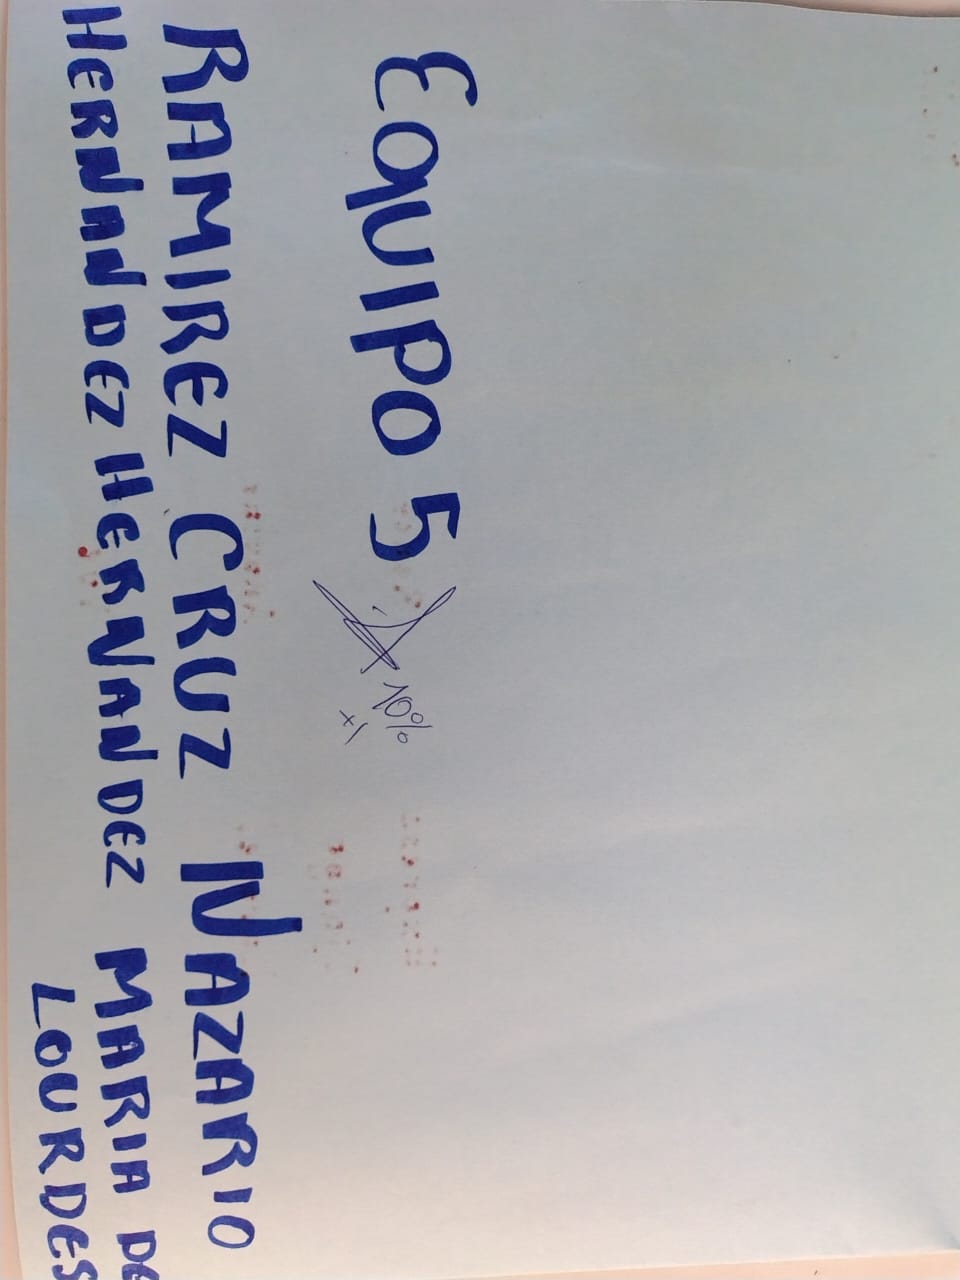 Equipo 5
10%
RAMIREZ CRUZ NAZARIO
HERNANDEZ HERNANDEZ MARIA DE
LOURDES